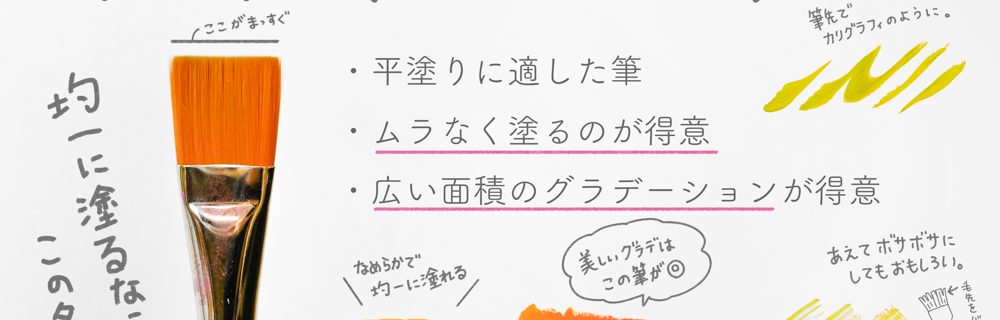 ここがまっすぐ
均一に塗るな
この
・平塗りに適した筆
・ムラなく塗るのが得意
・広い面積のグラデーションが得意
筆先で
カリグラフィのように。
なめらかで
均一に塗れる
美しいグラデは
この筆が◎
あえてボサボサに
してもおもしろい。
毛先を